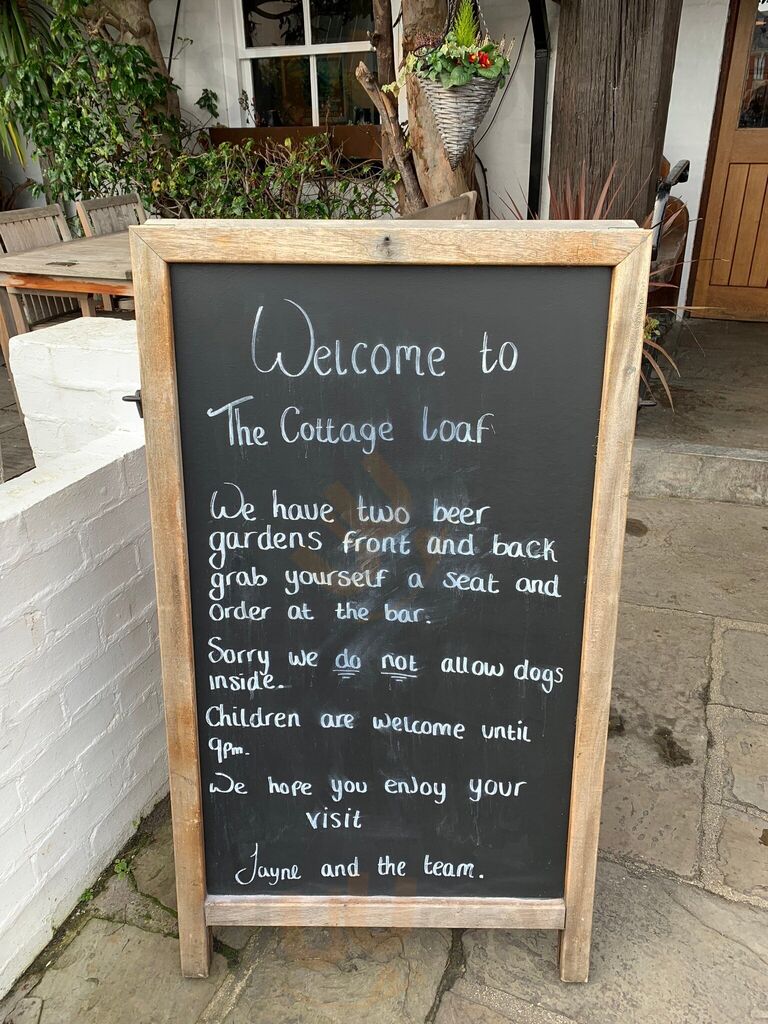 Welcome to
The Cottage Loaf
We have two beer
gardens front and back
grab yourself a seat and
order at the bar.
Sorry we do not allow dogs
inside.
Children are welcome until
9pm.
We hope you enjoy your
visit
Jayne and the team.